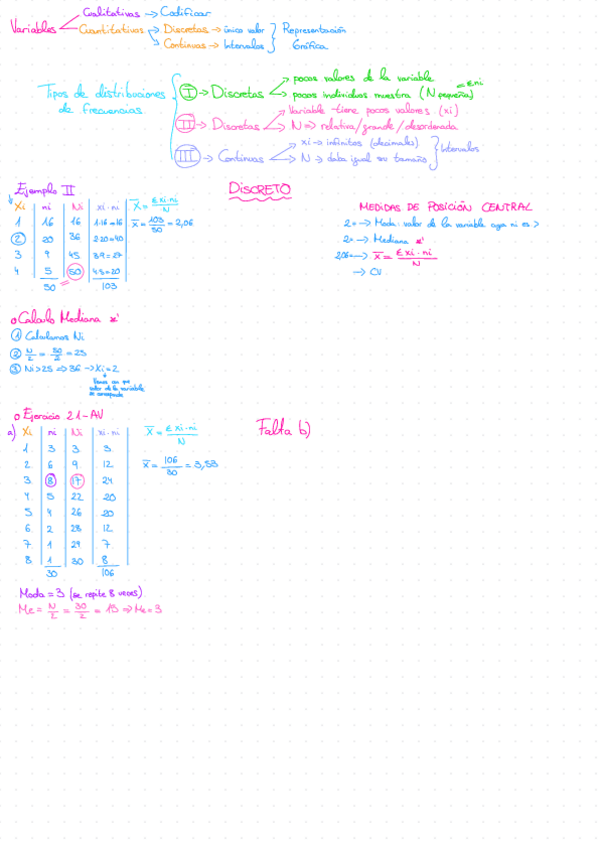 Variables
Cualitativas → Codificar
Cuantitativas → Discretas → único valor
Continuas → Intervalos
Representación
Gráfica
Tipos de distribuciones
de frecuencias
I → Discretas
pocos valores de la variable
pocos individuos muestra (N pequeña) = Σni
II → Discretas
Variable tiene pocos valores (xi)
N ⇒ relativa/grande/desordenada
III → Continuas
xi → infinitos (decimales)
N → da igual su tamaño
Intervalos
Ejemplo II
DISCRETO
Xi ni Ni xi·ni
1 16 16 1·16=16
2 20 36 2·20=40
3 9 45 3·9=27
4 5 50 4·5=20
50 103
X̄ = Σxi·ni / N
x̄ = 103/50 = 2,06
MEDIDAS DE POSICIÓN CENTRAL
2 → Moda: valor de la variable cuya ni es >
2 → Mediana
2,06 → x̄ = Σxi·ni / N
→ CV
o Calculo Mediana
1 Calculamos Ni
2 N/2 = 50/2 = 25
3 Ni > 25 ⇒ 36 → Xi = 2
Vemos con que
valor de la variable
se corresponde
o Ejercicio 21-AV
a) Xi ni Ni xi·ni
1 3 3 3
2 6 9 12
3 8 17 24
4 5 22 20
5 4 26 20
6 2 28 12
7 1 29 7
8 1 30 8
30 106
X̄ = Σxi·ni / N
x̄ = 106/30 = 3,53
Falta b)
Moda = 3 (se repite 8 veces)
Me = N/2 = 30/2 = 15 ⇒ Me = 3